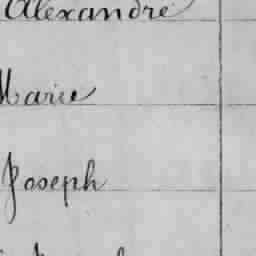 Alexandre
Marie
Joseph